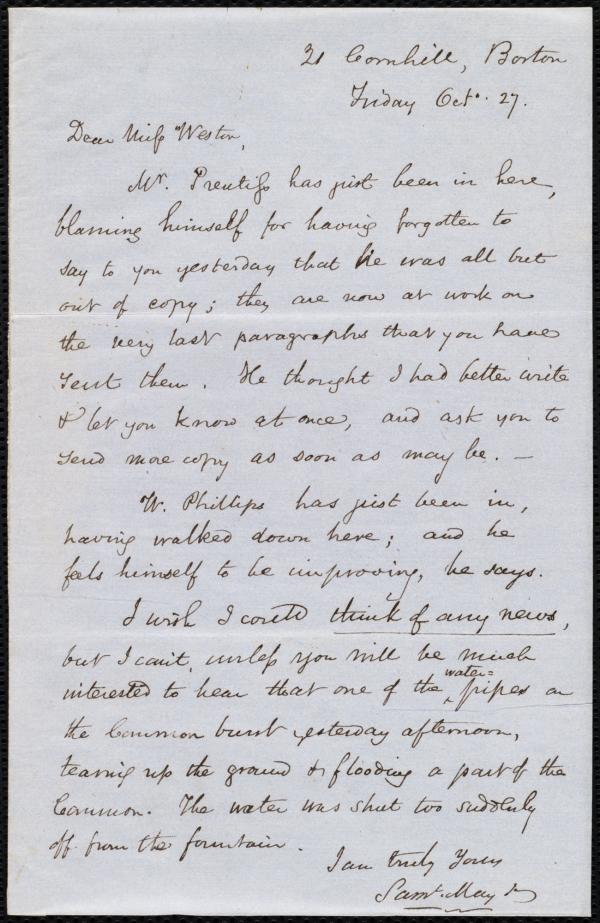 21 Cornhill, Boston
Friday Oct. 27.
Dear Miss Weston,
Mr. Prentiss has just been in here,
blaming himself for having forgotten to
say to you yesterday that he was all but
out of copy; they are now at work on
the very last paragraphs that you have
sent them. He thought I had better write
& let you know at once, and ask you to
send more copy as soon as may be. —
W. Phillips has just been in,
having walked down here; and he
feels himself to be improving, he says.
I wish I could think of any news,
but I can't, unless you will be much
interested to hear that one of the water=pipes on
the Common burst yesterday afternoon,
tearing up the ground & flooding a part of the
Common. The water was shut too suddenly
off from the fountain.
I am truly Yours
Saml. May Jr